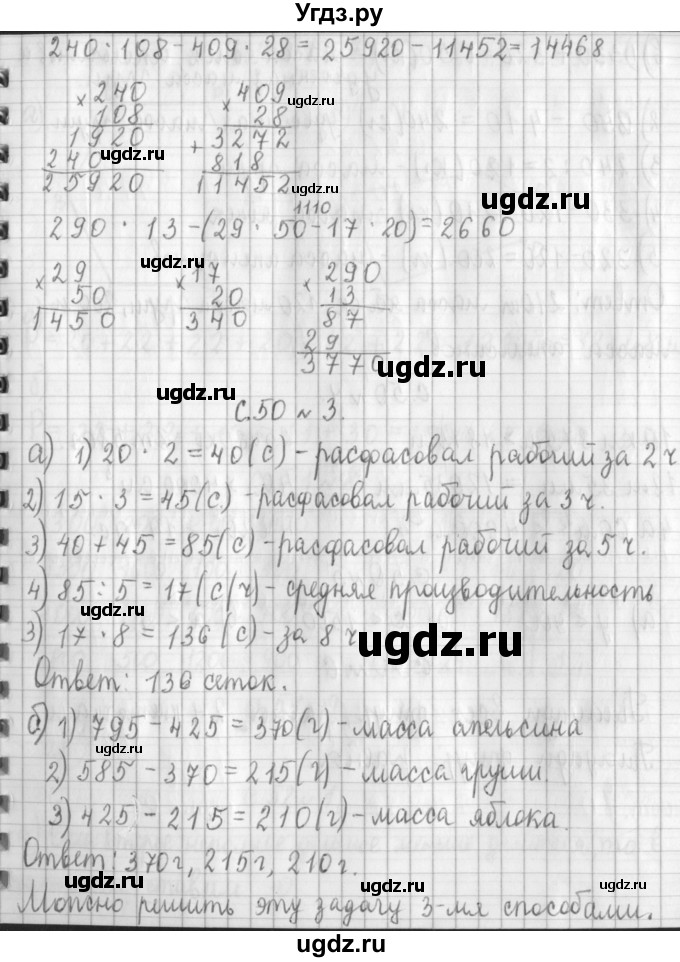 Угдз.ру
240 · 108 - 409 · 28 = 25920 - 11452 = 14468
× 240 × 409 ugdz.ru
108 28
1920 + 3272
240 818
ugdz.ru ugdz.ru
25920 11452
ugdz.ru
1110
290 · 13 - (29 · 50 - 17 · 20) = 2660
ugdz.ru
× 29 × 17 × 290
50 20 13
1450 340 87
ugdz.ru
29
3770
ugdz.ru ugdz.ru
с.50 № 3.
а) 1) 20 · 2 = 40 (с) - расфасовал рабочий за 2 ч
2) 15 · 3 = 45 (с) - расфасовал рабочий за 3 ч.
3) 40 + 45 = 85 (с) - расфасовал рабочий за 5 ч.
4) 85 : 5 = 17 (с/ч) - средняя производительность
ugdz.ru
3) 17 · 8 = 136 (с) - за 8 ч
ugdz.ru
Ответ: 136 сеток.
б) 1) 795 - 425 = 370 (г) - масса апельсина
ugdz.ru
2) 585 - 370 = 215 (г) - масса груши.
ugdz.ru
3) 425 - 215 = 210 (г) - масса яблока.
Ответ: 370г, 215г, 210г.
ugdz.ru ugdz.ru ugdz.ru
Можно решить эту задачу 3-мя способами.
ugdz.ru